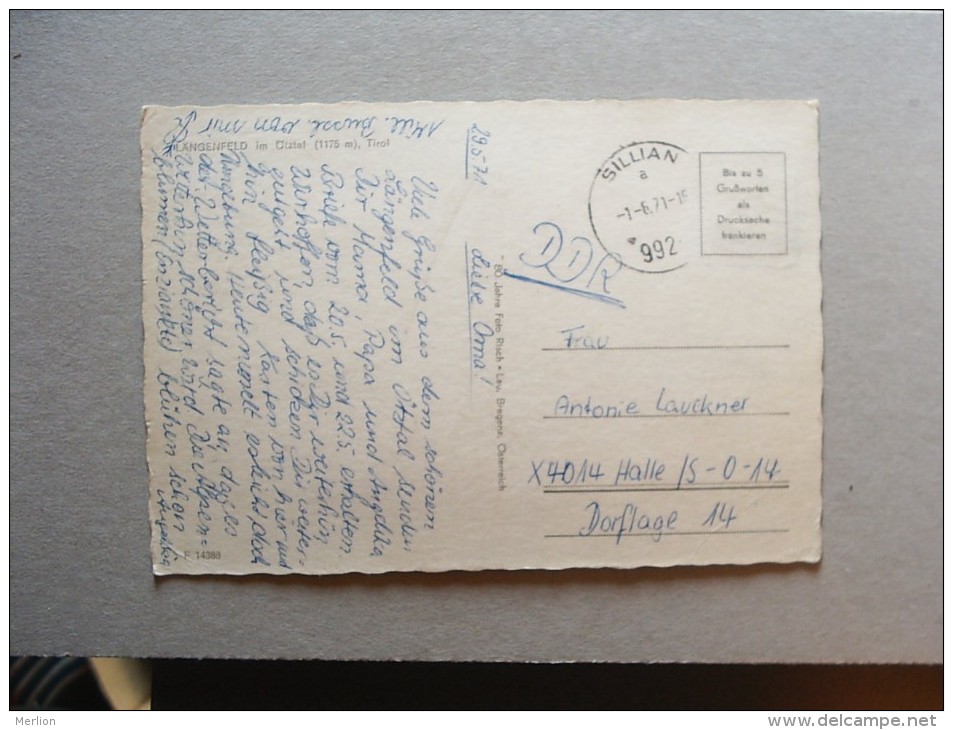 LÄNGENFELD im Ötztal (1175 m), Tirol
29.5.71
Liebe Oma!
Viele Grüße aus dem schönen
Längenfeld im Ötztal senden
Dir Mama, Papa und Angelika
Brief vom 20.5. und 22.5. erhalten.
Wir hoffen, daß es Dir weiterhin
gut geht und schicken Dir weiter-
hin fleißig Karten von hier und
Umgebung. Heute
der Wetterbericht sagte an, daß es
weiterhin schöner wird. Die Alpen-
blumen (Enziane) blühen schon
Angelika
Bussi von mir
F 14388
80 Jahre Foto Risch-Lau, Bregenz, Österreich
SILLIAN
a
-1.-6.71-1
992
Bis zu 5
Grußworten
als
Drucksache
frankieren
DDR
Frau
Antonie Lauckner
X4014 Halle/S-O-14
Dorflage 14
Merlion
www.delcampe.net